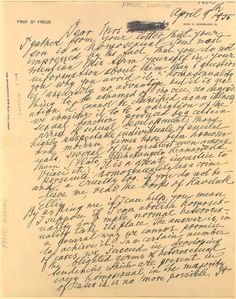 PROF. Dr FREUD
April 9th 1935
Dear Mrs
I gather from your letter that your
son is a homosexual. I am most
impressed by the fact that you do not
mention this term yourself in your
information about him. May I question
you why you avoid it? Homosexuality
is assuredly no advantage but it is
nothing to be ashamed of, no vice, no degradation,
it cannot be classified as an illness;
we consider it to be a variation of the
sexual function produced by a certain
arrest of sexual development. Many
highly respectable individuals of ancient
and modern times have been homosexuals,
several of the greatest men among
them
It is a great injustice to
persecute homosexuality as a crime
and cruelty too. If you do not believe
me, read the books of Havelock
Ellis.
By asking me if I can help, you mean
I suppose, if I can abolish homosexuality
and make normal heterosexuality
take its place. The answer is, in
a general way, we cannot promise
to achieve it. In a certain number
of cases we succeed in developing
the blighted germs of heterosexual
tendencies which are present in
every homosexual, in the majority
of cases it is no more possible. It